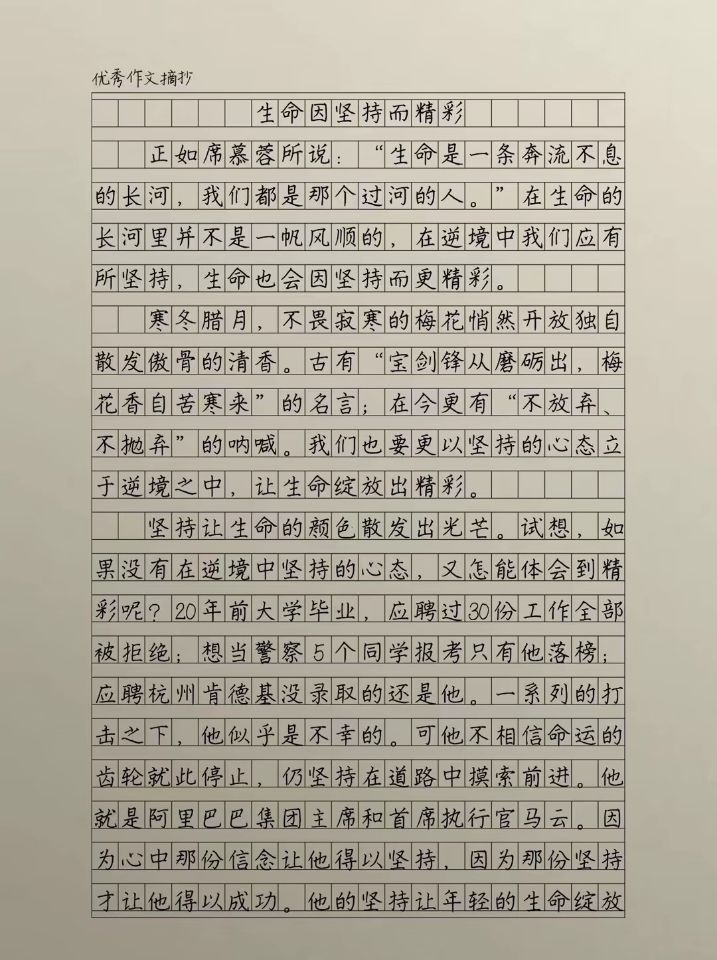 优秀作文摘抄
生命因坚持而精彩
正如席慕蓉所说：“生命是一条奔流不息
的长河，我们都是那个过河的人。”在生命的
长河里并不是一帆风顺的，在逆境中我们应有
所坚持，生命也会因坚持而更精彩。
寒冬腊月，不畏寂寒的梅花悄然开放独自
散发傲骨的清香。古有“宝剑锋从磨砺出，梅
花香自苦寒来”的名言；在今更有“不放弃、
不抛弃”的呐喊。我们也要更以坚持的心态立
于逆境之中，让生命绽放出精彩。
坚持让生命的颜色散发出光芒。试想，如
果没有在逆境中坚持的心态，又怎能体会到精
彩呢？20年前大学毕业，应聘过30份工作全部
被拒绝；想当警察5个同学报考只有他落榜；
应聘杭州肯德基没录取的还是他。一系列的打
击之下，他似乎是不幸的。可他不相信命运的
齿轮就此停止，仍坚持在道路中摸索前进。他
就是阿里巴巴集团主席和首席执行官马云。因
为心中那份信念让他得以坚持，因为那份坚持
才让他得以成功。他的坚持让年轻的生命绽放